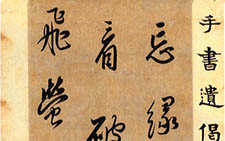 手書遺偈
忘緣
看破
飛螢